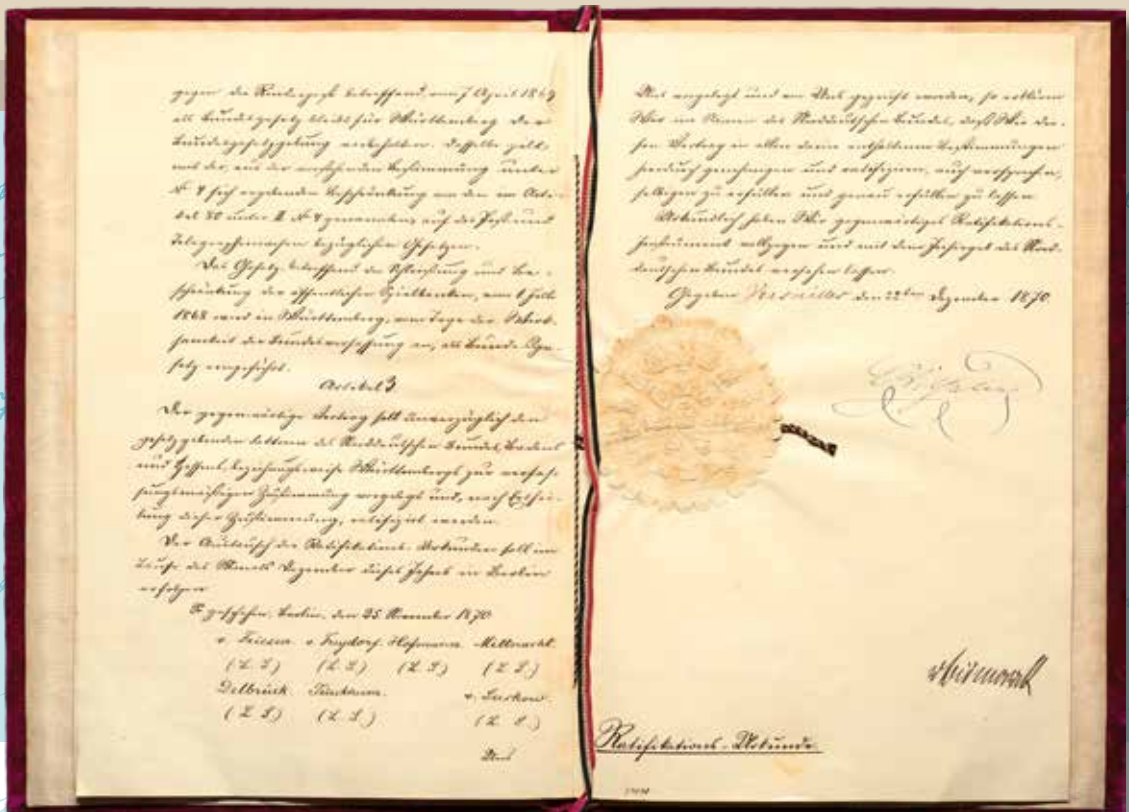 gegen die Rinderpest betreffend, vom 7 April 1869
als Bundesgesetz bleibt für Württemberg der
Bundesgesetzgebung vorbehalten. Dasselbe gilt,
mit der, aus der vorstehenden Bestimmung unter
№ 4 sich ergebenden Beschränkung von den im Arti-
kel 80 unter II № 4 genannten, auf das Post- und
Telegraphenwesen bezüglichen Gesetzen.
Das Gesetz betreffend die Schließung und Be-
schränkung der öffentlichen Spielbanken, vom 1 Juli
1868 wird in Württemberg, vom Tage der Wirk-
samkeit der Bundesverfassung an, als Bundesge-
setz eingeführt.
Artikel 3
Der gegenwärtige Vertrag soll unverzüglich den
gesetzgebenden Faktoren des Norddeutschen Bundes, Badens
und Hessens, beziehungsweise Württembergs zur verfas-
sungsmäßigen Zustimmung vorgelegt und, nach Erthei-
lung dieser Zustimmung, ratifizirt werden.
Der Austausch der Ratifikations-Urkunden soll im
Laufe des Monats Dezember dieses Jahres in Berlin
erfolgen.
So geschehen, Berlin, den 25. November 1870.
v. Friesen. v. Freydorf. Hofmann. Mittnacht.
(L. S.) (L. S.) (L. S.) (L. S.)
Delbrück. Türckheim. v. Suckow.
(L. S.) (L. S.) (L. S.)
Uns
Uns vorgelegt und von Uns geprüft worden, so erklären
Wir im Namen des Norddeutschen Bundes, daß Wir die-
sen Vertrag in allen darin enthaltenen Bestimmungen
hierdurch genehmigen und ratifiziren, auch versprechen,
selbigen zu erfüllen und genau erfüllen zu lassen.
Urkundlich haben Wir gegenwärtiges Ratifikations-
Instrument vollzogen und mit dem Insiegel des Nord-
deutschen Bundes versehen lassen.
Gegeben Versailles den 22ten Dezember 1870.
Wilhelm
v Bismarck
Ratifikations-Urkunde.